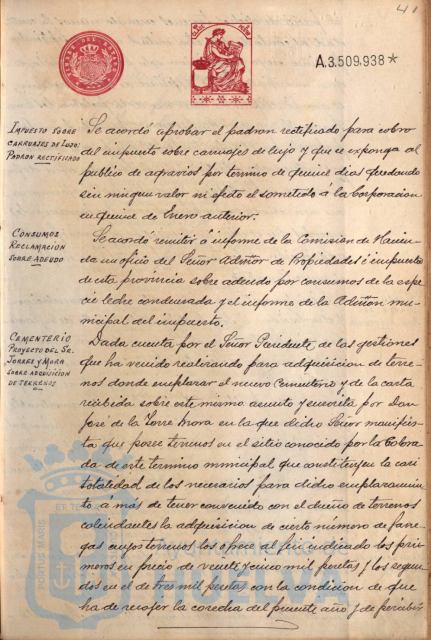 41
A.3.509.938*
IMPUESTO SOBRE
CARRUAJES DE LUJO:
PADRON RECTIFICADO
Se acordó aprobar el padron rectificado para cobro
del impuesto sobre carruajes de lujo y que se exponga al
publico de agravios por término de quince dias quedando
sin ningun valor ni efecto el sometido á la Corporacion
en quince de Enero anterior.
CONSUMOS
RECLAMACION
SOBRE ADEUDO
Se acordó remitir á informe de la Comision de Hacien-
da un oficio del Señor Admtor de Propiedades é impuestos
de esta provincia sobre adeudo por consumos de la espe-
cie leche condensada y el informe de la Admton mu-
nicipal del impuesto.
CEMENTERIO
PROYECTO DEL SR.
TORRES Y MORA
SOBRE ADQUISICION
DE TERRENOS
Dada cuenta por el Señor Presidente de las gestiones
que ha venido realizando para adquisicion de terre-
nos donde emplazar el nuevo Cementerio y de la carta
recibida sobre este mismo asunto y suscrita por Don
José de la Torre Mora en la que dicho Señor manifies-
ta que posee terrenos en el sitio conocido por la
da de este termino municipal que constituyen la casi
totalidad de los necesarios para dicho emplazamien-
to á mas de tener convenido con el dueño de terrenos
colindantes la adquisicion de cierto número de fane-
gas cuyos terrenos los ofrece al fin indicado los pri-
meros en precio de veinte y cinco mil pesetas y los segun-
dos en el de tres mil pesetas con la condicion de que
ha de recojer la cosecha del presente año y de percibir
PORTUS MARIS
ET TERRÆ